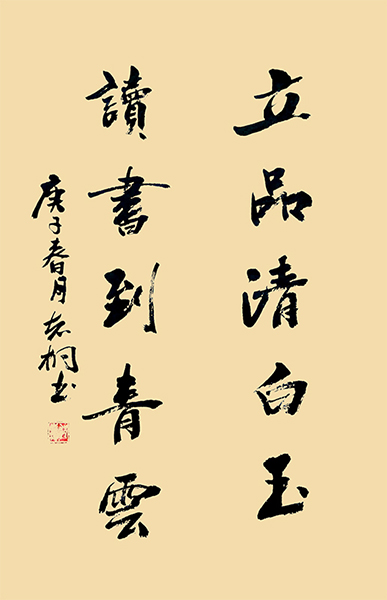 立品清白玉
讀書到青雲
庚子春月志桐书